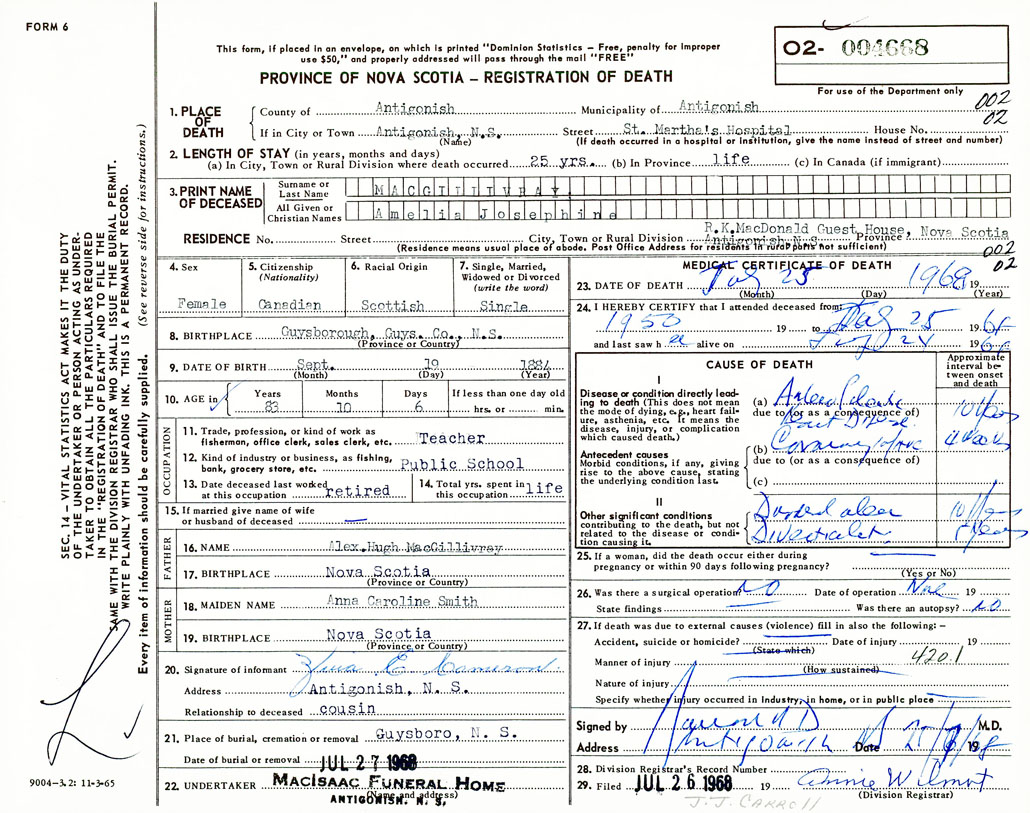 FORM 6
This form, if placed in an envelope, on which is printed "Dominion Statistics – Free, penalty for improper
use $50," and properly addressed will pass through the mail "FREE"
PROVINCE OF NOVA SCOTIA – REGISTRATION OF DEATH
O2- 004668
For use of the Department only
002
02
SEC. 14 – VITAL STATISTICS ACT MAKES IT THE DUTY
OF THE UNDERTAKER OR PERSON ACTING AS UNDER-
TAKER TO OBTAIN ALL THE PARTICULARS REQUIRED
IN THE "REGISTRATION OF DEATH" AND TO FILE THE
SAME WITH THE DIVISION REGISTRAR WHO SHALL ISSUE THE BURIAL PERMIT.
WRITE PLAINLY WITH UNFADING INK. THIS IS A PERMANENT RECORD.
Every item of information should be carefully supplied. (See reverse side for instructions.)
1. PLACE OF DEATH
County of Antigonish Municipality of Antigonish
If in City or Town Antigonish, N.S. Street St. Martha's Hospital House No.
(Name) (If death occurred in a hospital or institution, give the name instead of street and number)
2. LENGTH OF STAY (in years, months and days)
(a) In City, Town or Rural Division where death occurred 25 yrs. (b) In Province life (c) In Canada (if immigrant)
3. PRINT NAME OF DECEASED
Surname or Last Name MACGILLIVRAY
All Given or Christian Names Amelia Josephine
R.K.MacDonald Guest House, Nova Scotia
RESIDENCE No. Street City, Town or Rural Division Antigonish N.S. Province
(Residence means usual place of abode. Post Office Address for residents in rural parts not sufficient)
002
02
4. Sex Female
5. Citizenship (Nationality) Canadian
6. Racial Origin Scottish
7. Single, Married, Widowed or Divorced (write the word) Single
8. BIRTHPLACE Guysborough, Guys. Co., N.S.
(Province or Country)
9. DATE OF BIRTH Sept. 19 1884
(Month) (Day) (Year)
10. AGE in Years 83 Months 10 Days 6 If less than one day old hrs. or min.
OCCUPATION
11. Trade, profession, or kind of work as fisherman, office clerk, sales clerk, etc. Teacher
12. Kind of industry or business, as fishing, bank, grocery store, etc. Public School
13. Date deceased last worked at this occupation retired
14. Total yrs. spent in this occupation life
15. If married give name of wife or husband of deceased
FATHER
16. NAME Alex.Hugh MacGillivray
17. BIRTHPLACE Nova Scotia
(Province or Country)
MOTHER
18. MAIDEN NAME Anna Caroline Smith
19. BIRTHPLACE Nova Scotia
(Province or Country)
20. Signature of informant E. Cameron
Address Antigonish, N. S.
Relationship to deceased cousin
21. Place of burial, cremation or removal Guysboro, N. S.
Date of burial or removal JUL 27 1968
22. UNDERTAKER MACISAAC FUNERAL HOME
(Name and address)
ANTIGONISH, N. S.
9004-3.2: 11-3-65
MEDICAL CERTIFICATE OF DEATH
23. DATE OF DEATH July 25 1968 19
(Month) (Day) (Year)
24. I HEREBY CERTIFY that I attended deceased from:
1950 19 to July 25 1968
and last saw her alive on July 24 1968
CAUSE OF DEATH
Approximate interval between onset and death
I
Disease or condition directly leading to death (This does not mean the mode of dying, e.g., heart failure, asthenia, etc. It means the disease, injury, or complication which caused death.)
(a)
due to (or as a consequence of)
Heart Disease
10 years
Antecedent causes
Morbid conditions, if any, giving rise to the above cause, stating the underlying condition last.
(b) Coronary
due to (or as a consequence of)
(c)
II
Other significant conditions
contributing to the death, but not related to the disease or condition causing it.
Duodenal ulcer 10 years
Diverticulitis years
25. If a woman, did the death occur either during
pregnancy or within 90 days following pregnancy?
(Yes or No)
26. Was there a surgical operation? NO Date of operation 19
State findings Was there an autopsy? NO
27. If death was due to external causes (violence) fill in also the following: –
Accident, suicide or homicide? Date of injury 19
(State which)
Manner of injury 420.1
(How sustained)
Nature of injury
Specify whether injury occurred in Industry, in home, or in public place
Signed by M.D.
Address Antigonish Date 1968
28. Division Registrar's Record Number
29. Filed JUL 26 1968 19 Annie Wilmot
(Division Registrar)
J.J. CARROLL